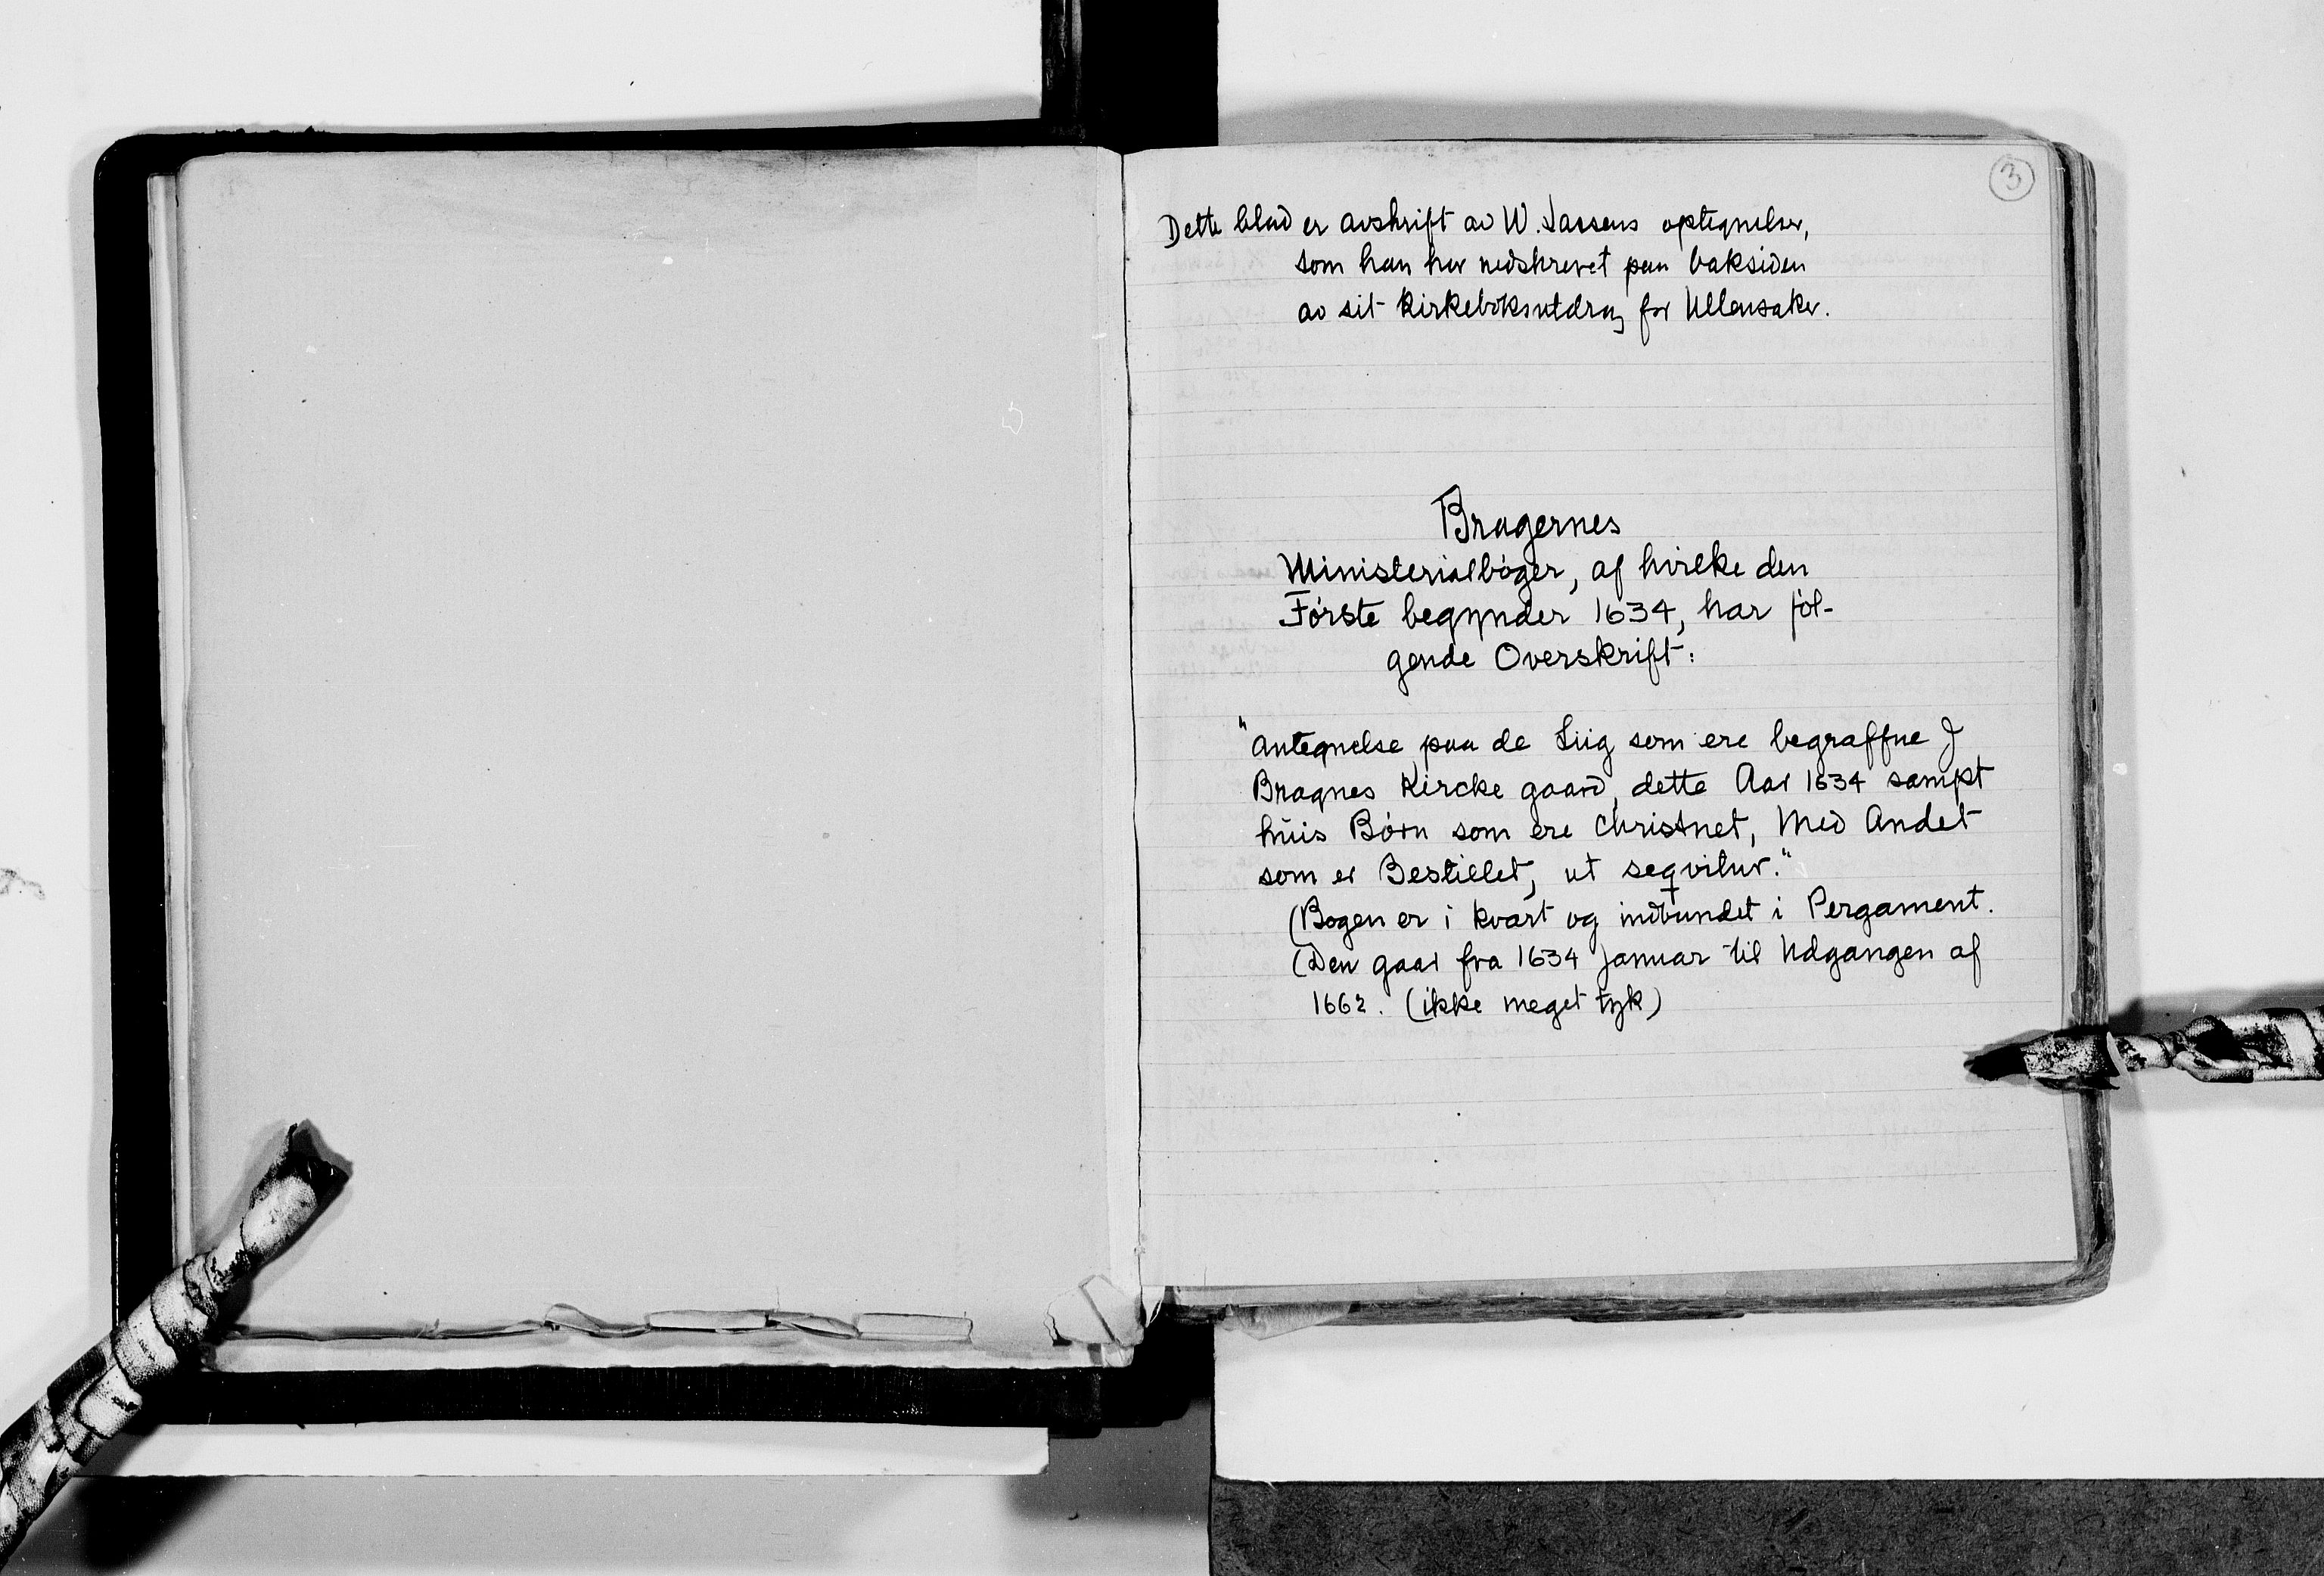 3
Dette blad er avskrift av W. Lassens optegnelser,
som han har nedskrevet paa baksiden
av sit kirkeboksutdrag for Ullensaker.
Bragernes
Ministerialbøger, af hvilke den
Første begynder 1634, har føl-
gende Overskrift:
"Antegnelse paa de Liig som ere begraffne J
Bragnes Kircke gaard, dette Aar 1634 sampt
huis Børn som ere Christnet, Med Andet
som er Bestillet, ut seqvitur."
(Bogen er i kvart og indbundet i Pergament.
(Den gaar fra 1634 Januar til Udgangen af
1662. (ikke meget tyk)